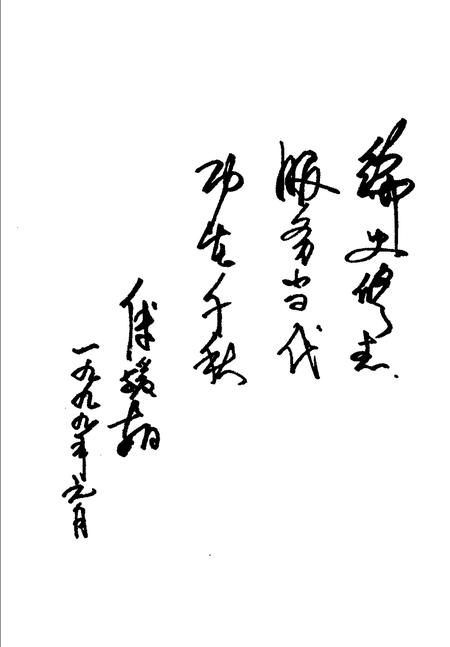 编史修志
服务当代
功在千秋
傅
一九九九年元月